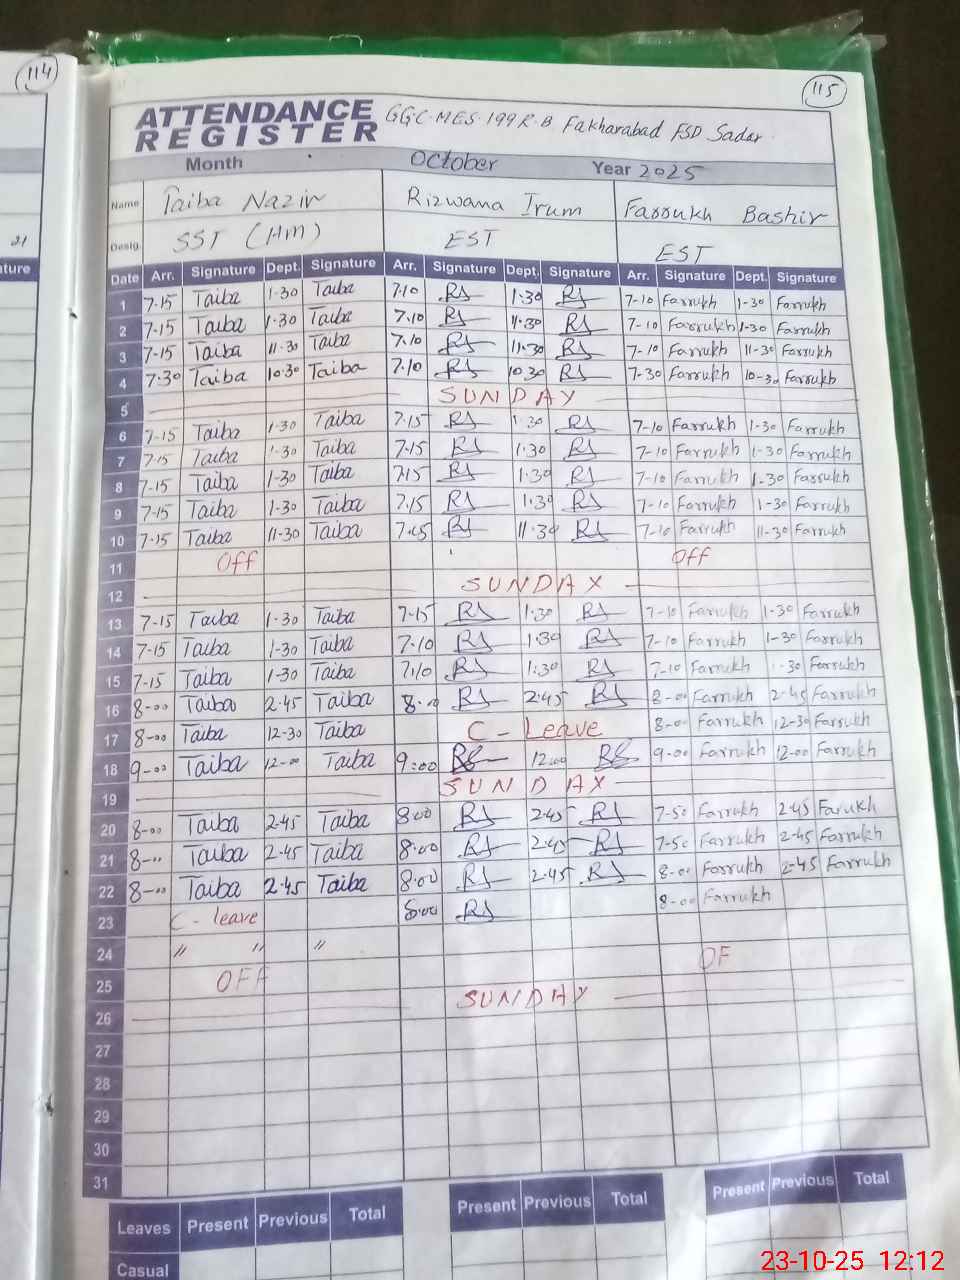 114
115
ATTENDANCE REGISTER GGC.MES.199 R.B Fakharabad FSD Sadar.
Month October Year 2025
Name Taiba Nazir Rizwana Irum Farrukh Bashir
Desig. SST (Hm) EST EST
21
ture
Date Arr. Signature Dept. Signature Arr. Signature Dept. Signature Arr. Signature Dept. Signature
1 7-15 Taiba 1-30 Taiba 7.10 RJ 1.30 RJ 7-10 Farrukh 1-30 Farrukh
2 7-15 Taiba 1-30 Taiba 7.10 RJ 11.30 RJ 7-10 Farrukh 1-30 Farrukh
3 7-15 Taiba 11-30 Taiba 7.10 RJ 11.30 RJ 7-10 Farrukh 11-30 Farrukh
4 7-30 Taiba 10-30 Taiba 7.10 RJ 10.30 RJ 7-30 Farrukh 10-30 Farrukh
5 SUNDAY
6 7-15 Taiba 1-30 Taiba 7.15 RJ 1.30 RJ 7-10 Farrukh 1-30 Farrukh
7 7-15 Taiba 1-30 Taiba 7.15 RJ 1.30 RJ 7-10 Farrukh 1-30 Farrukh
8 7-15 Taiba 1-30 Taiba 7.15 RJ 1.30 RJ 7-10 Farrukh 1-30 Farrukh
9 7-15 Taiba 1-30 Taiba 7.15 RJ 1.30 RJ 7-10 Farrukh 1-30 Farrukh
10 7-15 Taiba 11-30 Taiba RJ 11.30 RJ 7-10 Farrukh 11-30 Farrukh
11 Off Off
12 SUNDAY
13 7-15 Taiba 1-30 Taiba 7-15 RJ 1.30 RJ 7-10 Farrukh 1-30 Farrukh
14 7-15 Taiba 1-30 Taiba 7-10 RJ 1.30 RJ 7-10 Farrukh 1-30 Farrukh
15 7-15 Taiba 1-30 Taiba 7.10 RJ 1.30 RJ 7-10 Farrukh 1-30 Farrukh
16 8-00 Taiba 2.45 Taiba 8.00 RJ 2.45 RJ 8-00 Farrukh 2-45 Farrukh
17 8-00 Taiba 12-30 Taiba C - Leave 8-00 Farrukh 12-30 Farrukh
18 9-00 Taiba 12-00 Taiba 9:00 12.00 9-00 Farrukh 12-00 Farrukh
19 SUNDAY
20 8-00 Taiba 2.45 Taiba 8.00 RJ 2.45 RJ 7-50 Farrukh 2.45 Farukh
21 8-00 Taiba 2.45 Taiba 8.00 RJ 2.45 RJ 7-50 Farrukh 2-45 Farrukh
22 8-00 Taiba 2.45 Taiba 8.00 RJ 2.45 RJ 8-00 Farrukh 2-45 Farrukh
23 C - leave 8.00 RJ 8-00 Farrukh
24 〃 〃 〃
25 OFF OF
26 SUNDAY
27
28
29
30
31
Leaves Present Previous Total Present Previous Total Present Previous Total
Casual
23-10-25 12:12